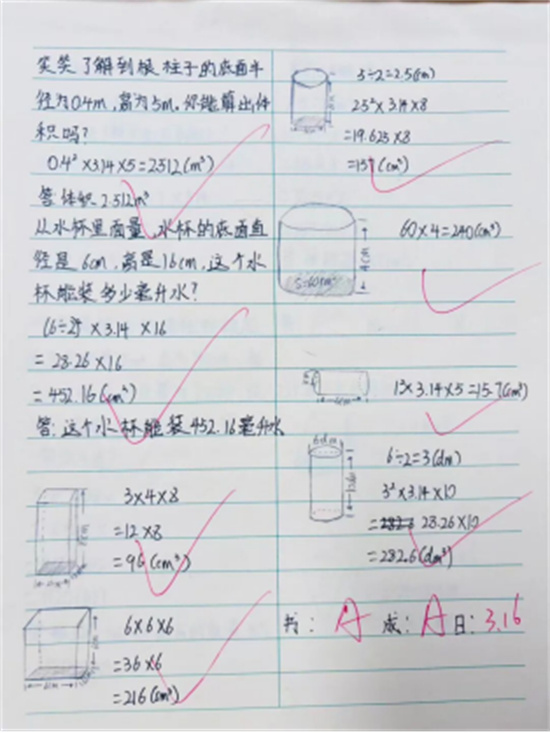 笑笑了解到一根柱子的底面半
径为0.4m,高为5m.你能算出体
积吗?
0.4²×3.14×5=2.512(m³)
答:体积2.512m³
从水杯里面量,水杯的底面直
径是6cm,高是16cm,这个水
杯能装多少毫升水?
(6÷2)²×3.14×16
=28.26×16
=452.16(cm³)
答:这个水杯能装452.16毫升水
3×4×8
=12×8
=96(cm³)
6×6×6
=36×6
=216(cm³)
5÷2=2.5(cm)
2.5²×3.14×8
=19.625×8
=157(cm³)
S=60cm²
4cm
60×4=240(cm³)
1²×3.14×5=15.7(cm³)
6dm
6÷2=3(dm)
3²×3.14×10
=28.26×10
=282.6(dm³)
书: A 成: A 日: 3.16